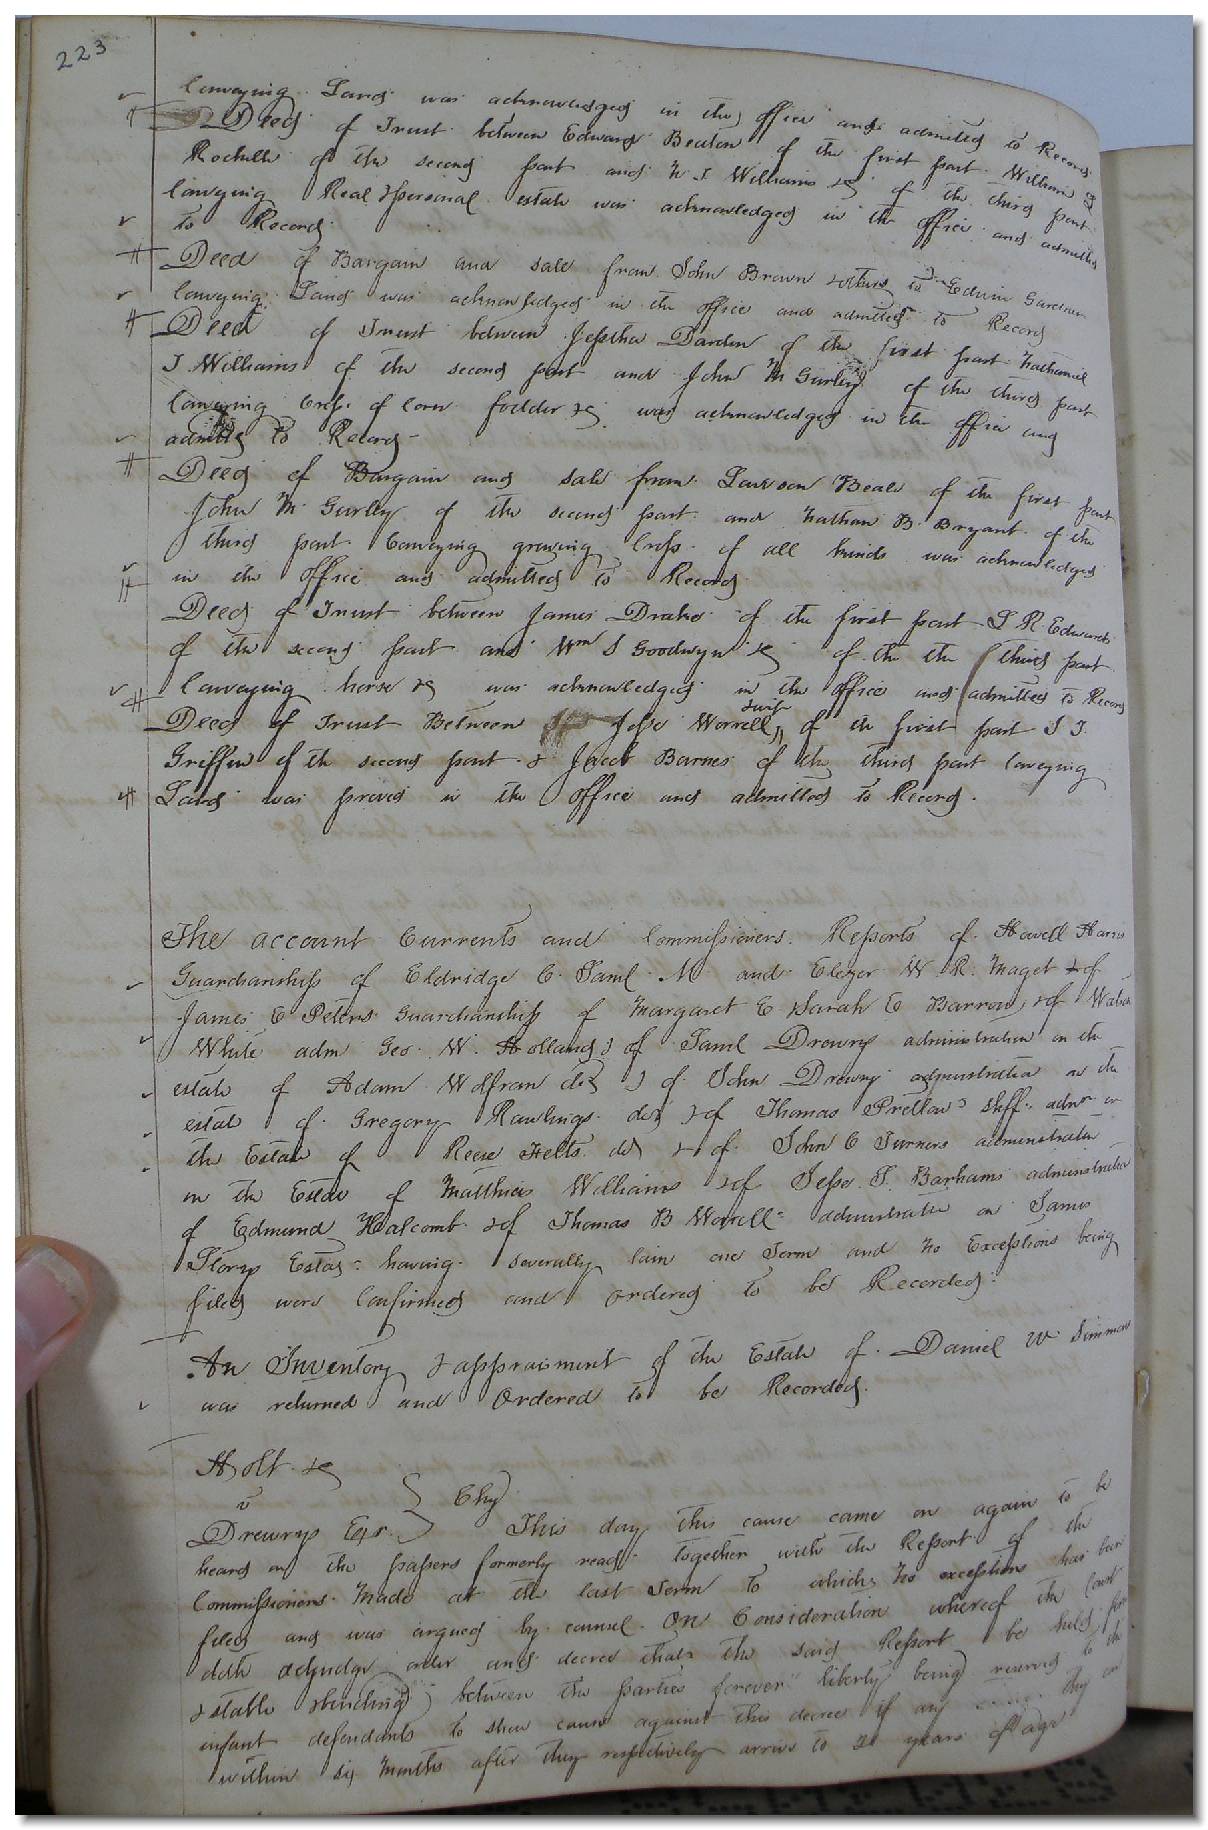 223
Conveying Land was acknowledged in the office and admitted to Record
Deed of Trust between Edward Beaton of the first part William
Rochelle of the second part and N J Williams &c of the third part
Conveying Real & personal estate was acknowledged in the office and admitted
to Record
Deed of Bargain and sale from John Brown & others to Edwin
Conveying Land was acknowledged in the office and admitted to Record
Deed of Trust between Jesse Darden of the first part Nathaniel
J Williams of the second part and John M Gurley of the third part
Conveying Crop of Corn fodder &c was acknowledged in the office and
admitted to Record
Deed of Bargain and sale from Lawson Beale of the first part
John M Gurley of the second part and Nathan B. Bryant of the
third part Conveying growing Crop of all kinds was acknowledged
in the office and admitted to Record
Deed of Trust between James Drake of the first part J R Edwards
of the second part and Wm S Goodwyn &c of the the third part
Conveying horse &c was acknowledged in the office and admitted to Record
Deed of Trust Between Jesse Worrell & wife of the first part S J
Griffin of the second part & Jacob Barnes of the third part Conveying
Land was proved in the office and admitted to Record.
The account Currents and Commissioners Reports of Howell Harris
Guardianship of Eldridge C. Saml M and W. R. Maget & of
James C Peters Guardianship of Margaret E & Sarah E Barrow, & of
White adm Geo. W. Holland, & of Saml Drewry administration on the
estate of Adam decd & of John Drewry administration on the
estate of Gregory Rawlings decd & of Thomas Pretlow Shff. admr on
the Estate of Reese Felts decd & of John C Turners administration
on the Estate of Matthias Williams & of Jesse J. Barhams administration
of Edmund Halcomb & of Thomas B Worrell administration on James
Story Estate having severally lain one Term and No Exceptions being
filed were Confirmed and ordered to be Recorded.
An Inventory & appraisment of the Estate of Daniel W Simmons
was returned and Ordered to be Recorded.
Holt &c
v } Chy
Drewrys Exr. This day this cause came on again to be
heard on the papers formerly read together with the Report of the
Commissioners Made at the last Term to which No exceptions has been
filed and was argued by counsel On Consideration whereof the Court
doth adjudge order and decree that the said Report be held firm
& stable & binding between the parties forever liberty being reserved to the
infant defendants to shew cause against this decree if any they can
within six Months after they respectively arrive to 21 years of age